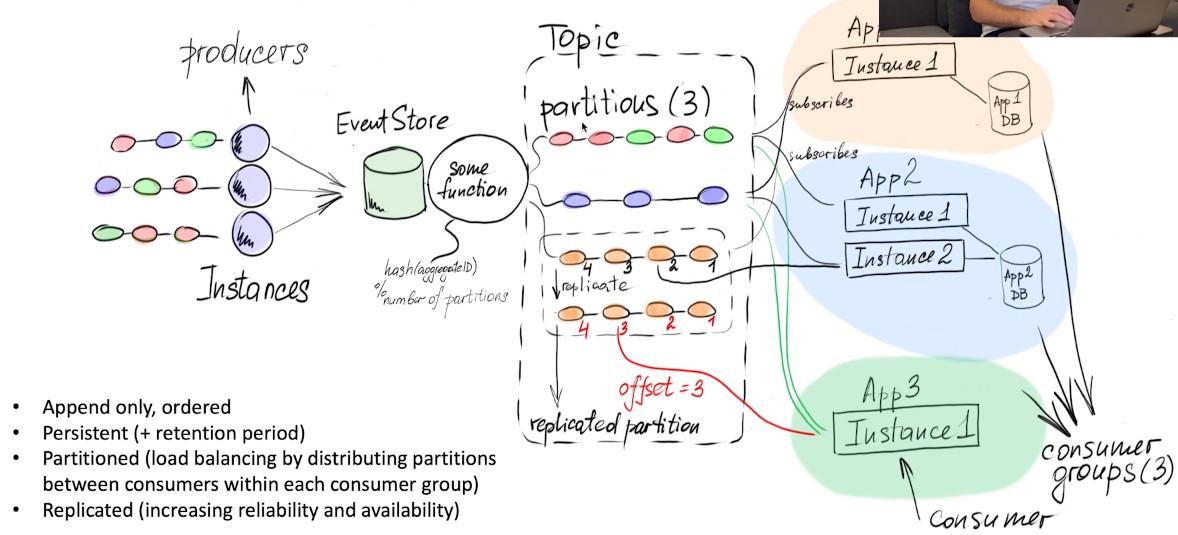 producers
Instances
EventStore
some
function
hash(aggregateID)
% number of partitions
Topic
partitions (3)
4 3 2 1
replicate
4 3 2 1
offset = 3
replicated partition
subscribes
subscribes
Ap
Instance 1
App 1
DB
App2
Instance 1
Instance 2
App2
DB
App3
Instance 1
consumer
groups (3)
consumer
• Append only, ordered
• Persistent (+ retention period)
• Partitioned (load balancing by distributing partitions
between consumers within each consumer group)
• Replicated (increasing reliability and availability)